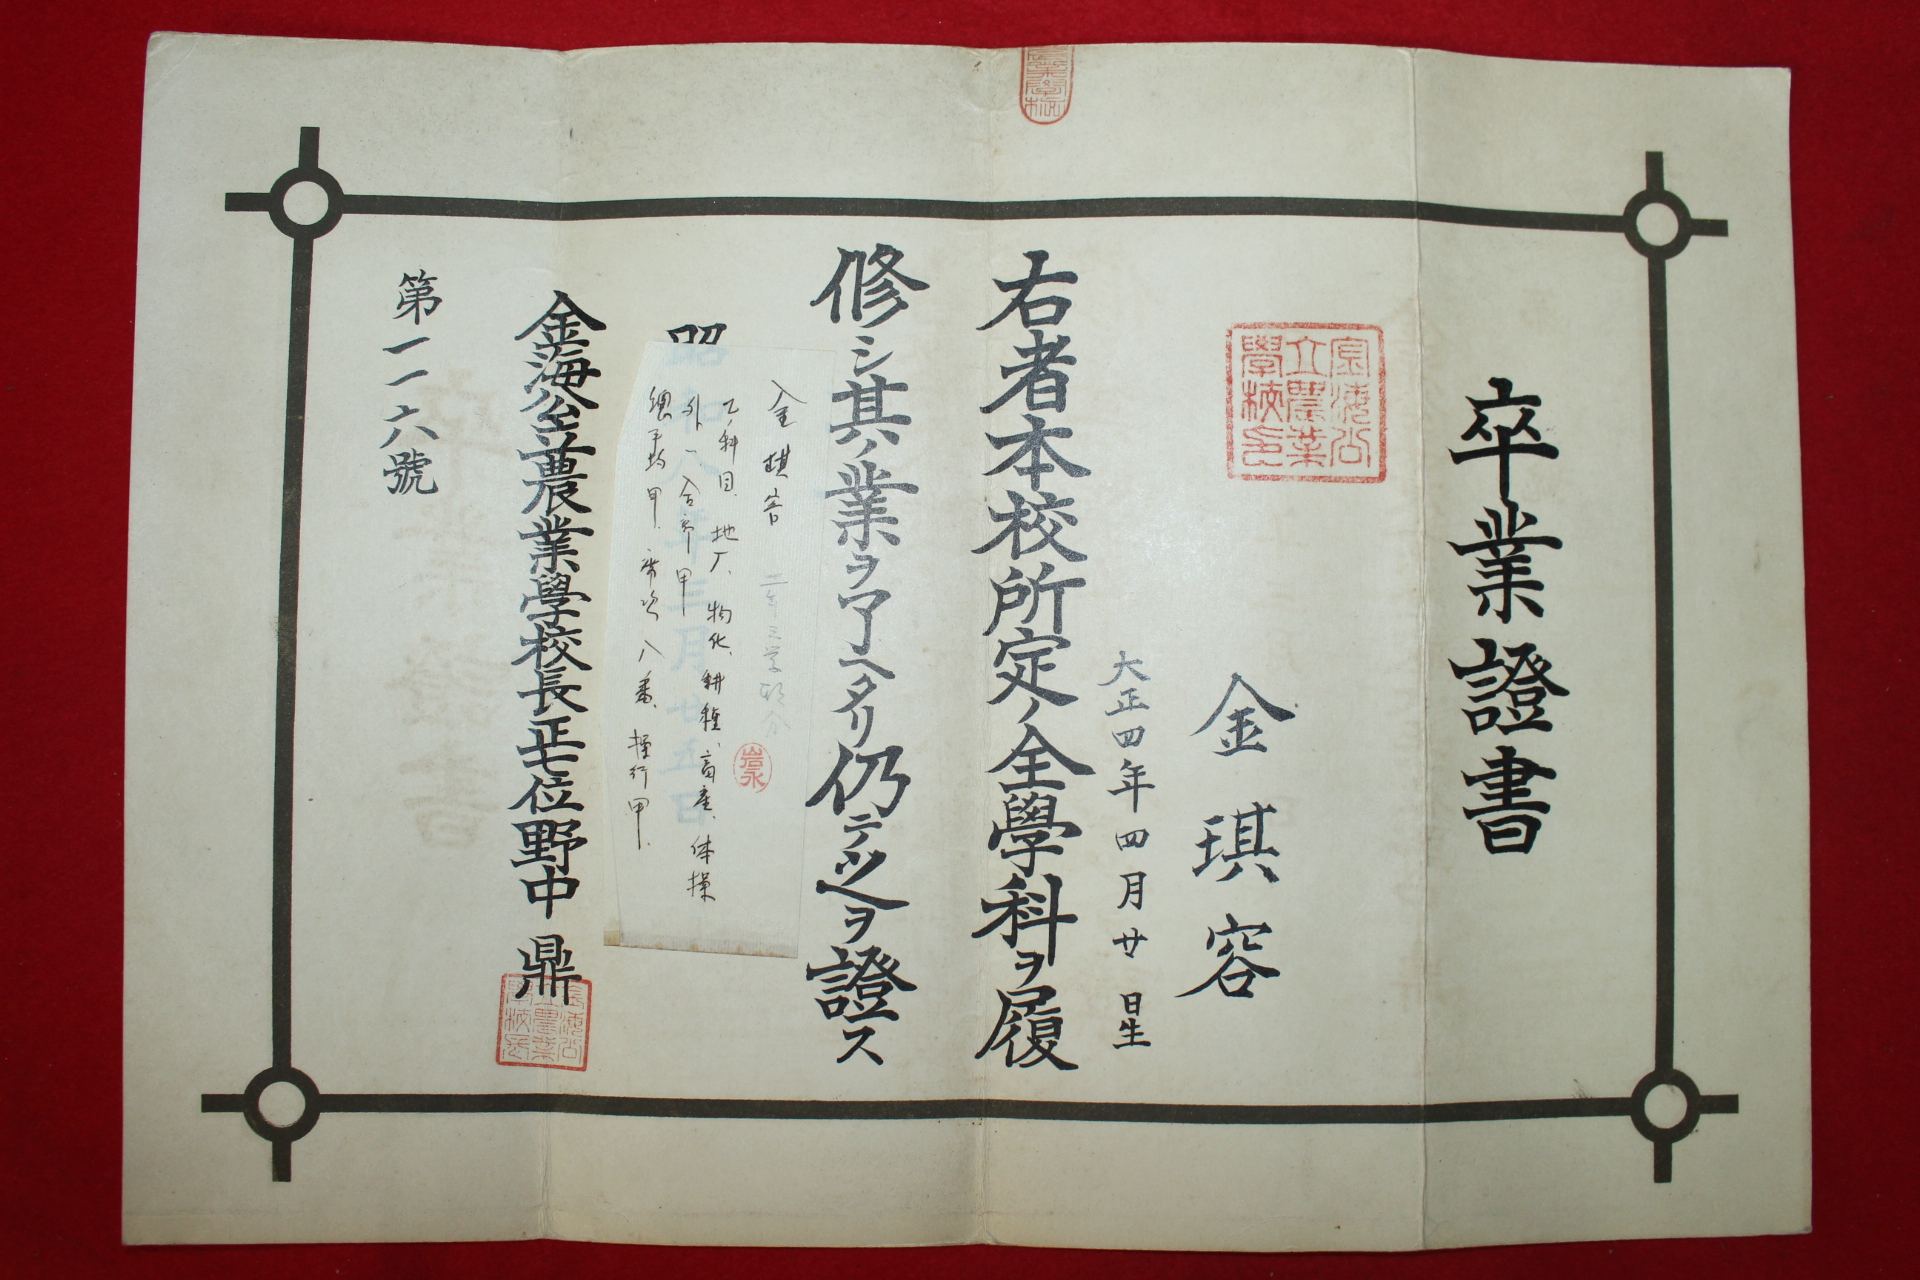 卒業證書
金海公
立農業
學校印
金琪容
大正四年四月廿日生
右者本校所定ノ全學科ヲ履
修シ其ノ業ヲ了ヘタリ仍テ之ヲ證ス
金琪容 二年三学期分
岩永
乙ノ科目、地厂、物化、耕種、畜産、体操
外ノ合介甲
總平均甲、席次八番、操行甲、
昭和八年三月廿五日
金海公立農業學校長正七位野中鼎
第一一六號